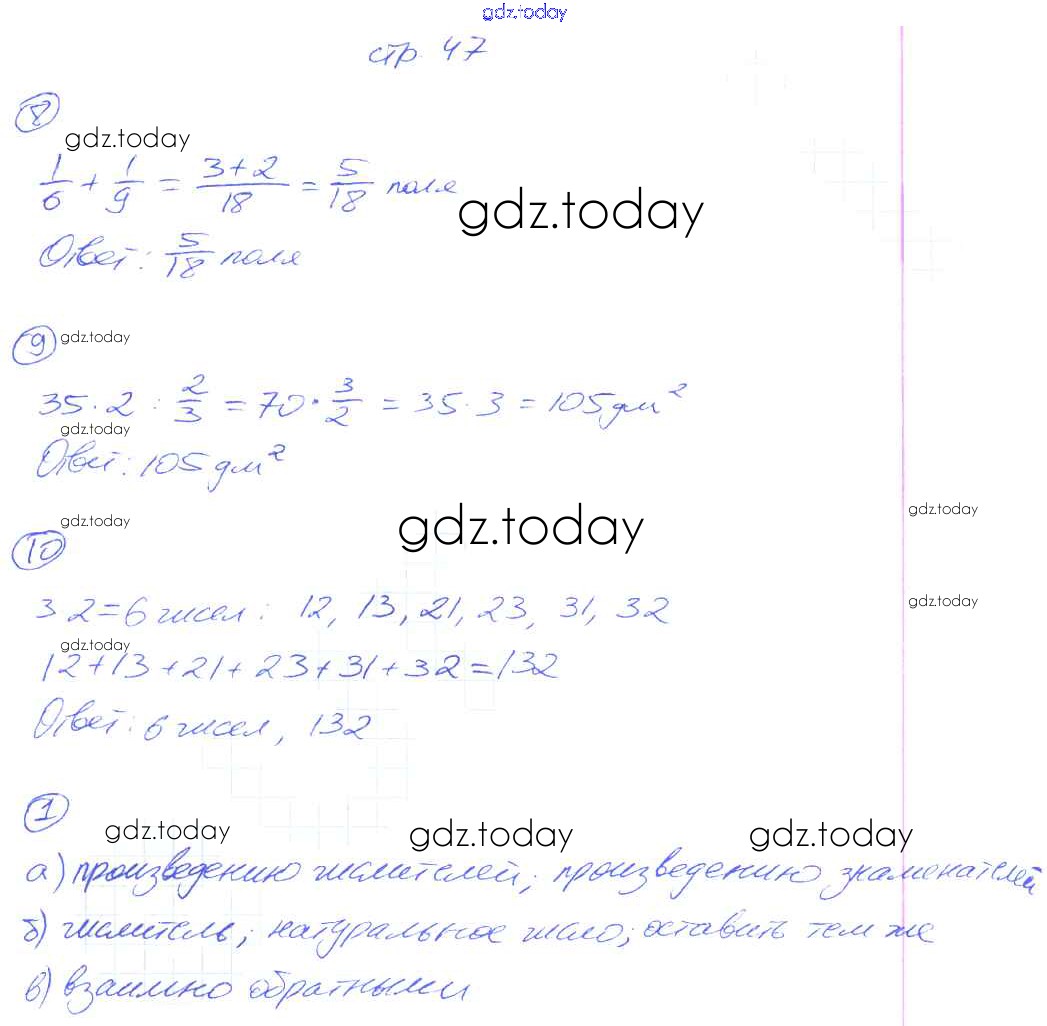 gdz.today
стр. 47
8
gdz.today
1/6 + 1/9 = (3+2)/18 = 5/18 поля
gdz.today
Ответ: 5/18 поля
9 gdz.today
35·2 : 2/3 = 70 · 3/2 = 35·3 = 105 дм²
gdz.today
Ответ: 105 дм²
gdz.today
gdz.today
gdz.today
10
3·2=6 чисел: 12, 13, 21, 23, 31, 32
gdz.today
gdz.today
12+13+21+23+31+32=132
Ответ: 6 чисел, 132
1
gdz.today gdz.today gdz.today
а) произведению числителей; произведению знаменателей
б) числитель; натуральное число; оставить тем же
в) взаимно обратными